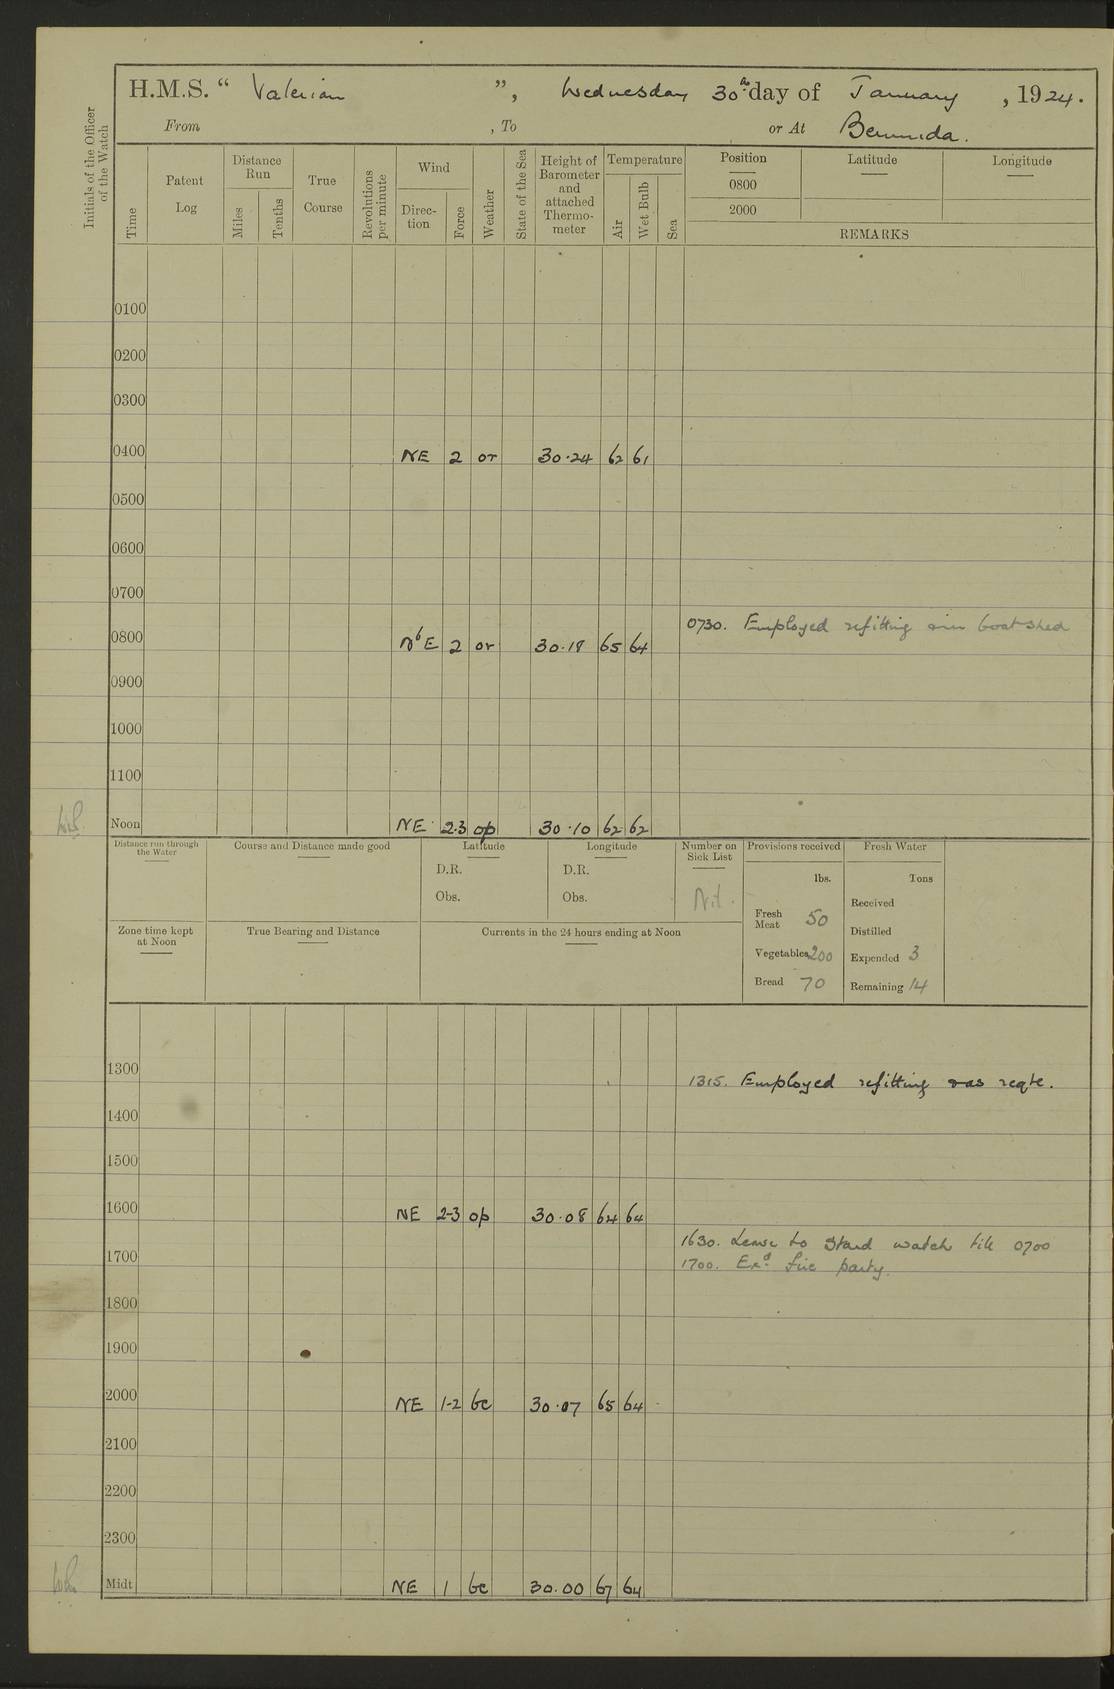 H.M.S. “ Valerian ”, Wednesday 30th day of January , 1924.
From , To or At Bermuda.
Initials of the Officer of the Watch
Time
Patent Log
Distance Run
Miles
Tenths
True Course
Revolutions per minute
Wind
Direction
Force
Weather
State of the Sea
Height of Barometer and attached Thermometer
Temperature
Air
Wet Bulb
Sea
Position Latitude Longitude
0800
2000
REMARKS
0100
0200
0300
0400 NE 2 or 30.24 62 61
0500
0600
0700
0730. Employed refitting boatshed
0800 NbE 2 or 30.18 65 64
0900
1000
1100
Noon NE 2.3 op 30.10 62 62
Distance run through the Water
Course and Distance made good
Latitude
D.R.
Obs.
Longitude
D.R.
Obs.
Number on Sick List
Nil.
Provisions received
lbs.
Fresh Meat 50
Vegetables 200
Bread 70
Fresh Water
Tons
Received
Distilled
Expended 3
Remaining 14
Zone time kept at Noon
True Bearing and Distance
Currents in the 24 hours ending at Noon
1300
1315. Employed refitting & as reqte.
1400
1500
1600 NE 2-3 op 30.08 64 64
1630. Leave to Stard watch till 0700
1700
1700. Exd. fire party.
1800
1900
2000 NE 1-2 bc 30.07 65 64
2100
2200
2300
Midt NE 1 bc 30.00 67 64